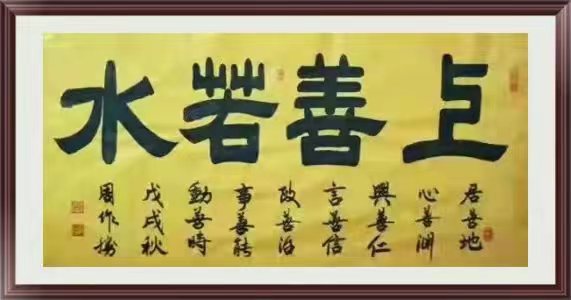 上善若水
居善地
心善渊
與善仁
言善信
政善治
事善能
動善時
戊戌秋
周作